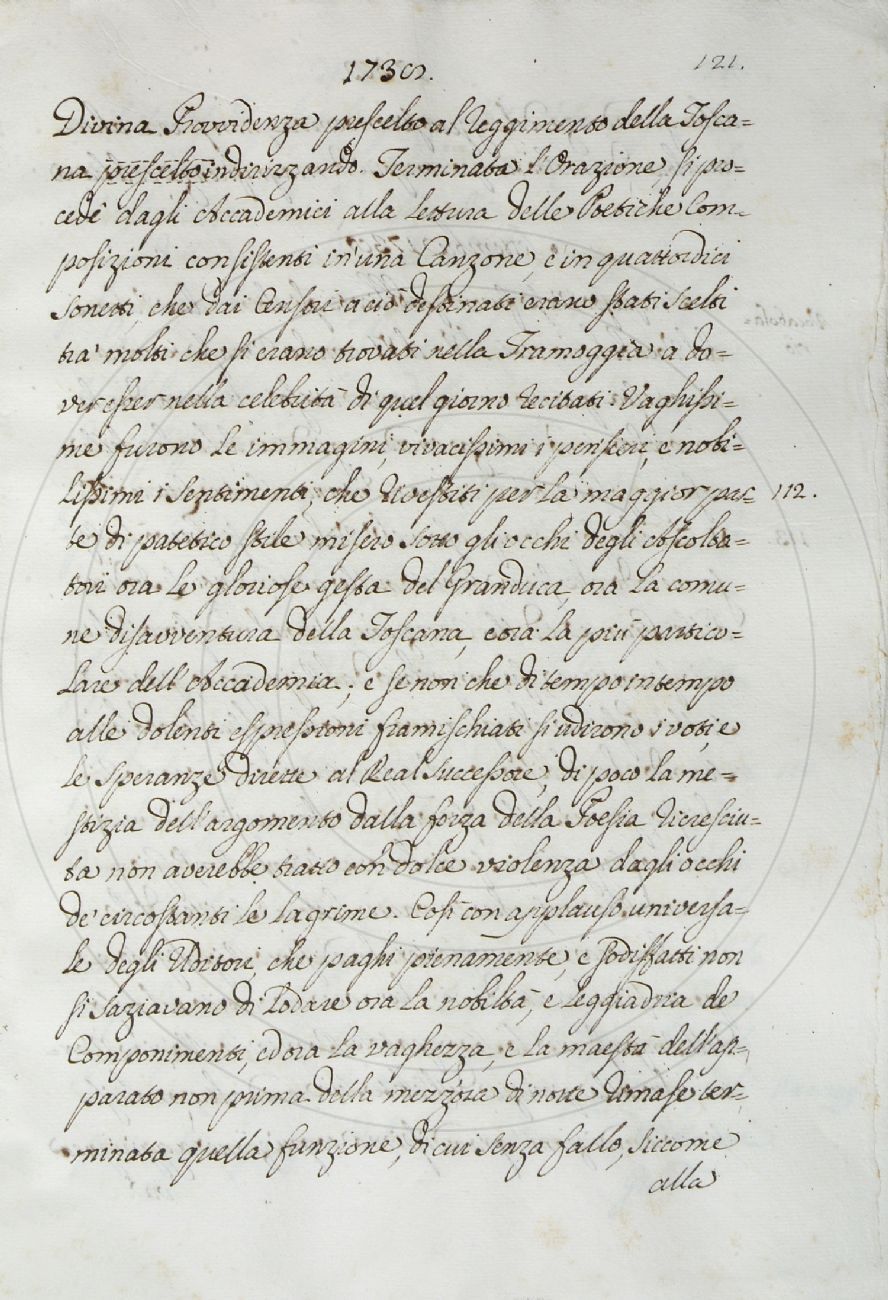 1738.
121.
Divina Provvidenza prescelto al reggimento della Tosca=
na prescelto indirizzando. Terminata l'Orazione, si pro=
cedè dagli Accademici alla lettura delle Poetiche Com=
posizioni consistenti in una Canzone, e in quattordici
Sonetti, che dai Censori a ciò destinati erano stati scelti
tra' molti che si erano trovati nella Tramoggia a do=
ver esser nella celebrità di quel giorno recitati. Vaghissi=
me furono le immagini, vivacissimi i pensieri, e nobi=
lissimi i sentimenti, che rivestiti per la maggior par=
112.
te di patetico stile misero sotto gli occhi degli Ascolta=
tori ora le gloriose gesta del Granduca, ora la comu=
ne disavventura della Toscana, e ora la più partico=
lare dell'Accademia; e se non che di tempo in tempo
alle dolenti espressioni framischiati si udirono i voti, e
le speranze dirette al Real Successore, di poco la me=
stizia dell'argomento dalla forza della Poesia ricresciu=
ta non averebbe tratto con dolce violenza dagli occhi
de' circostanti le lagrime. Così con applauso universa=
le degli Uditori, che paghi pienamente, e sodisfatti non
si saziavano di lodare ora la nobiltà, e leggiadria de'
Componimenti, ed ora la vaghezza, e la maestà dell'ap=
parato non prima della mezz'ora di notte rimase ter=
minata quella funzione, di cui senza fallo, siccome
alla